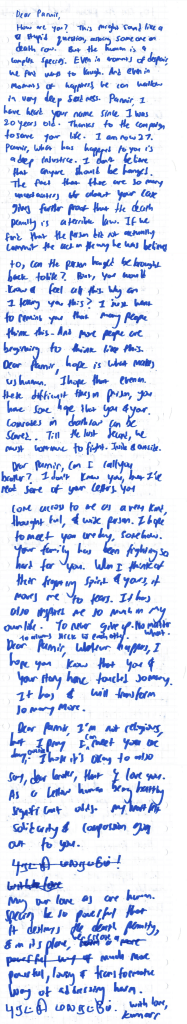 Dear Pannir,
How are you? This might sound like a
a stupid question, asking someone on
death row. But the human is a
complex species. Even in moments of despair,
we find ways to laugh. And even in
moments of happiness, he can wallow
in very deep sadness. Pannir, I
have heard your name since I was
20 years old. Thanks to the campaign
to save your life. I am now 27.
Pannir, what has happened to you is
a deep injustice. I don't believe
that anyone should be hanged.
The fact that there are so many
about your case
gives further proof that the death
penalty is a terrible law. If we
find that the person did not actually
commit the act or they may be was being
to, can the person hanged be brought
back to life? But, you would
know & feel all this. Why am
I telling you this? I just want
to remind you that many people
think this. And more people are
beginning to think like this.
Dear Pannir, hope is what makes
us human. I hope that even in
these difficult times in prison, you
have some hope that you & your
comrades in death row can be
saved. Till the last second, we
must continue to fight. Inside & outside.
Dear Pannir, can I call you
brother? I don't know you, but I've
read some of your letters. You
come across to me as a very kind,
thoughtful, & wise person. I hope
to meet you one day, somehow.
Your family has been fighting so
hard for you. When I think of
their fighting spirit & yours, it
moves me to tears. It has
also inspired me so much in my
own life. To never give up. No matter
what. To always stick to each other.
Dear Pannir, whatever happens, I
hope you know that you &
your story have touched so many.
It has & will transform
so many more.
Dear Pannir, I'm not religious,
but I pray I can meet you one
day. I hope it's okay to also
say, dear brother, that I love you.
As a fellow human being battling
significant odds. My heartfelt
solidarity & compassion goes
out to you.
May our love as a human
species be so powerful that
it destroys the death penalty,
& in its place, we create a more
powerful way of much more
powerful, loving & transformative
way of addressing harm.
With love,